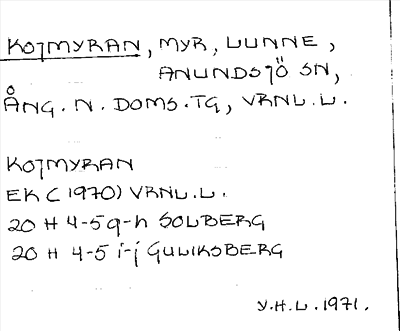 KOJMYRAN, MYR, LUNNE,
ANUNDSJÖ SN,
ÅNG. N. DOMS. TG, VRNL. L.
KOJMYRAN
EK (1970) VRNL. L.
20 H 4-5 g-h SOLBERG
20 H 4-5 i-j GULIKSBERG
Y. H. L. 1971.